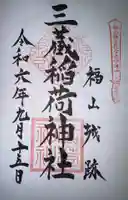 福山城跡
三蔵稲荷神社
令和六年九月十三日